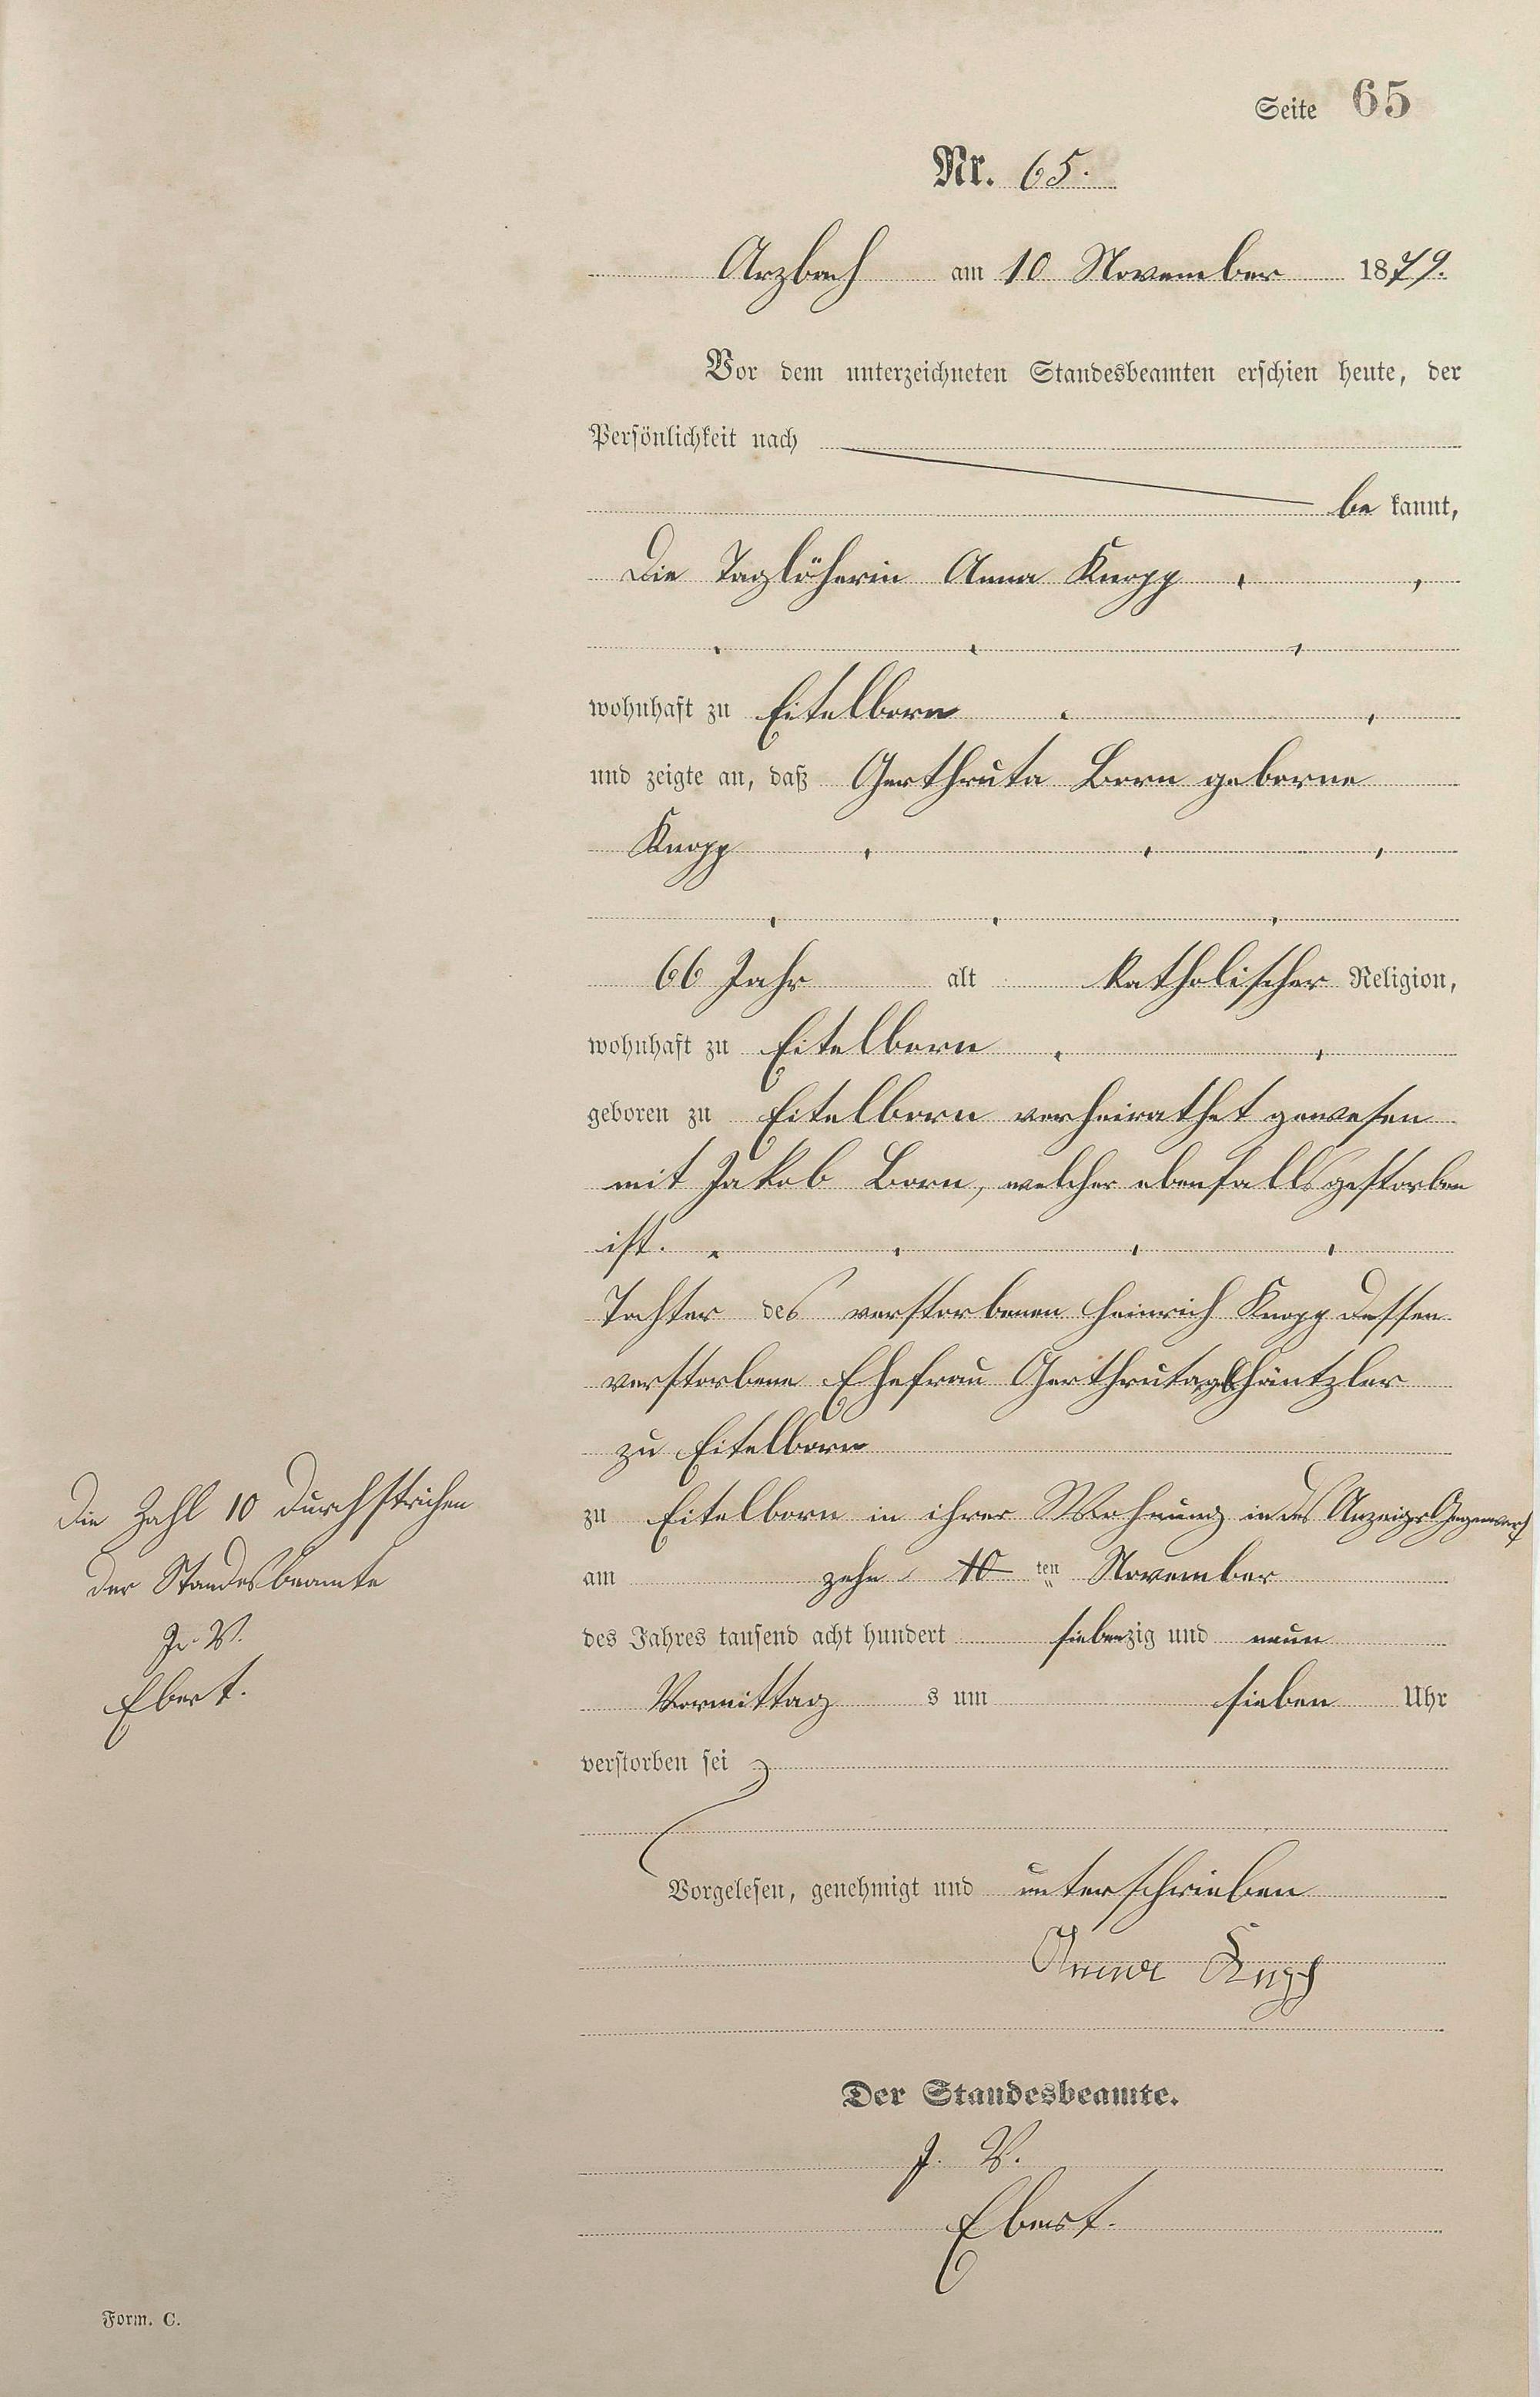 Seite 65
Nr. 65.
Arzbach am 10 November 1879.
Vor dem unterzeichneten Standesbeamten erschien heute, der
Persönlichkeit nach
be kannt,
Die Taglöherin Anna Knopp
wohnhaft zu Eitelborn
und zeigte an, daß Gerthruta Born geborne
Knopp
66 Jahr alt katholischer Religion,
wohnhaft zu Eitelborn
geboren zu Eitelborn verheirathet gewesen
mit Jakob Born, welcher ebenfalls gestorben
ist.
Tochter des verstorbenen Heinrich Knopp dessen
verstorbene Ehefrau Gerthruta
zu Eitelborn
zu Eitelborn in ihrer Wohnung in des Anzeigers Gegenwart
am zehn 10 ten November
des Jahres tausend acht hundert siebenzig und neun
Vormittag s um sieben Uhr
verstorben sei
Vorgelesen, genehmigt und unterschrieben
Anna Knopp
Der Standesbeamte.
J. V.
Ebert.
Die Zahl 10 durchstrichen
der Standesbeamte
J. V.
Ebert.
Form. C.